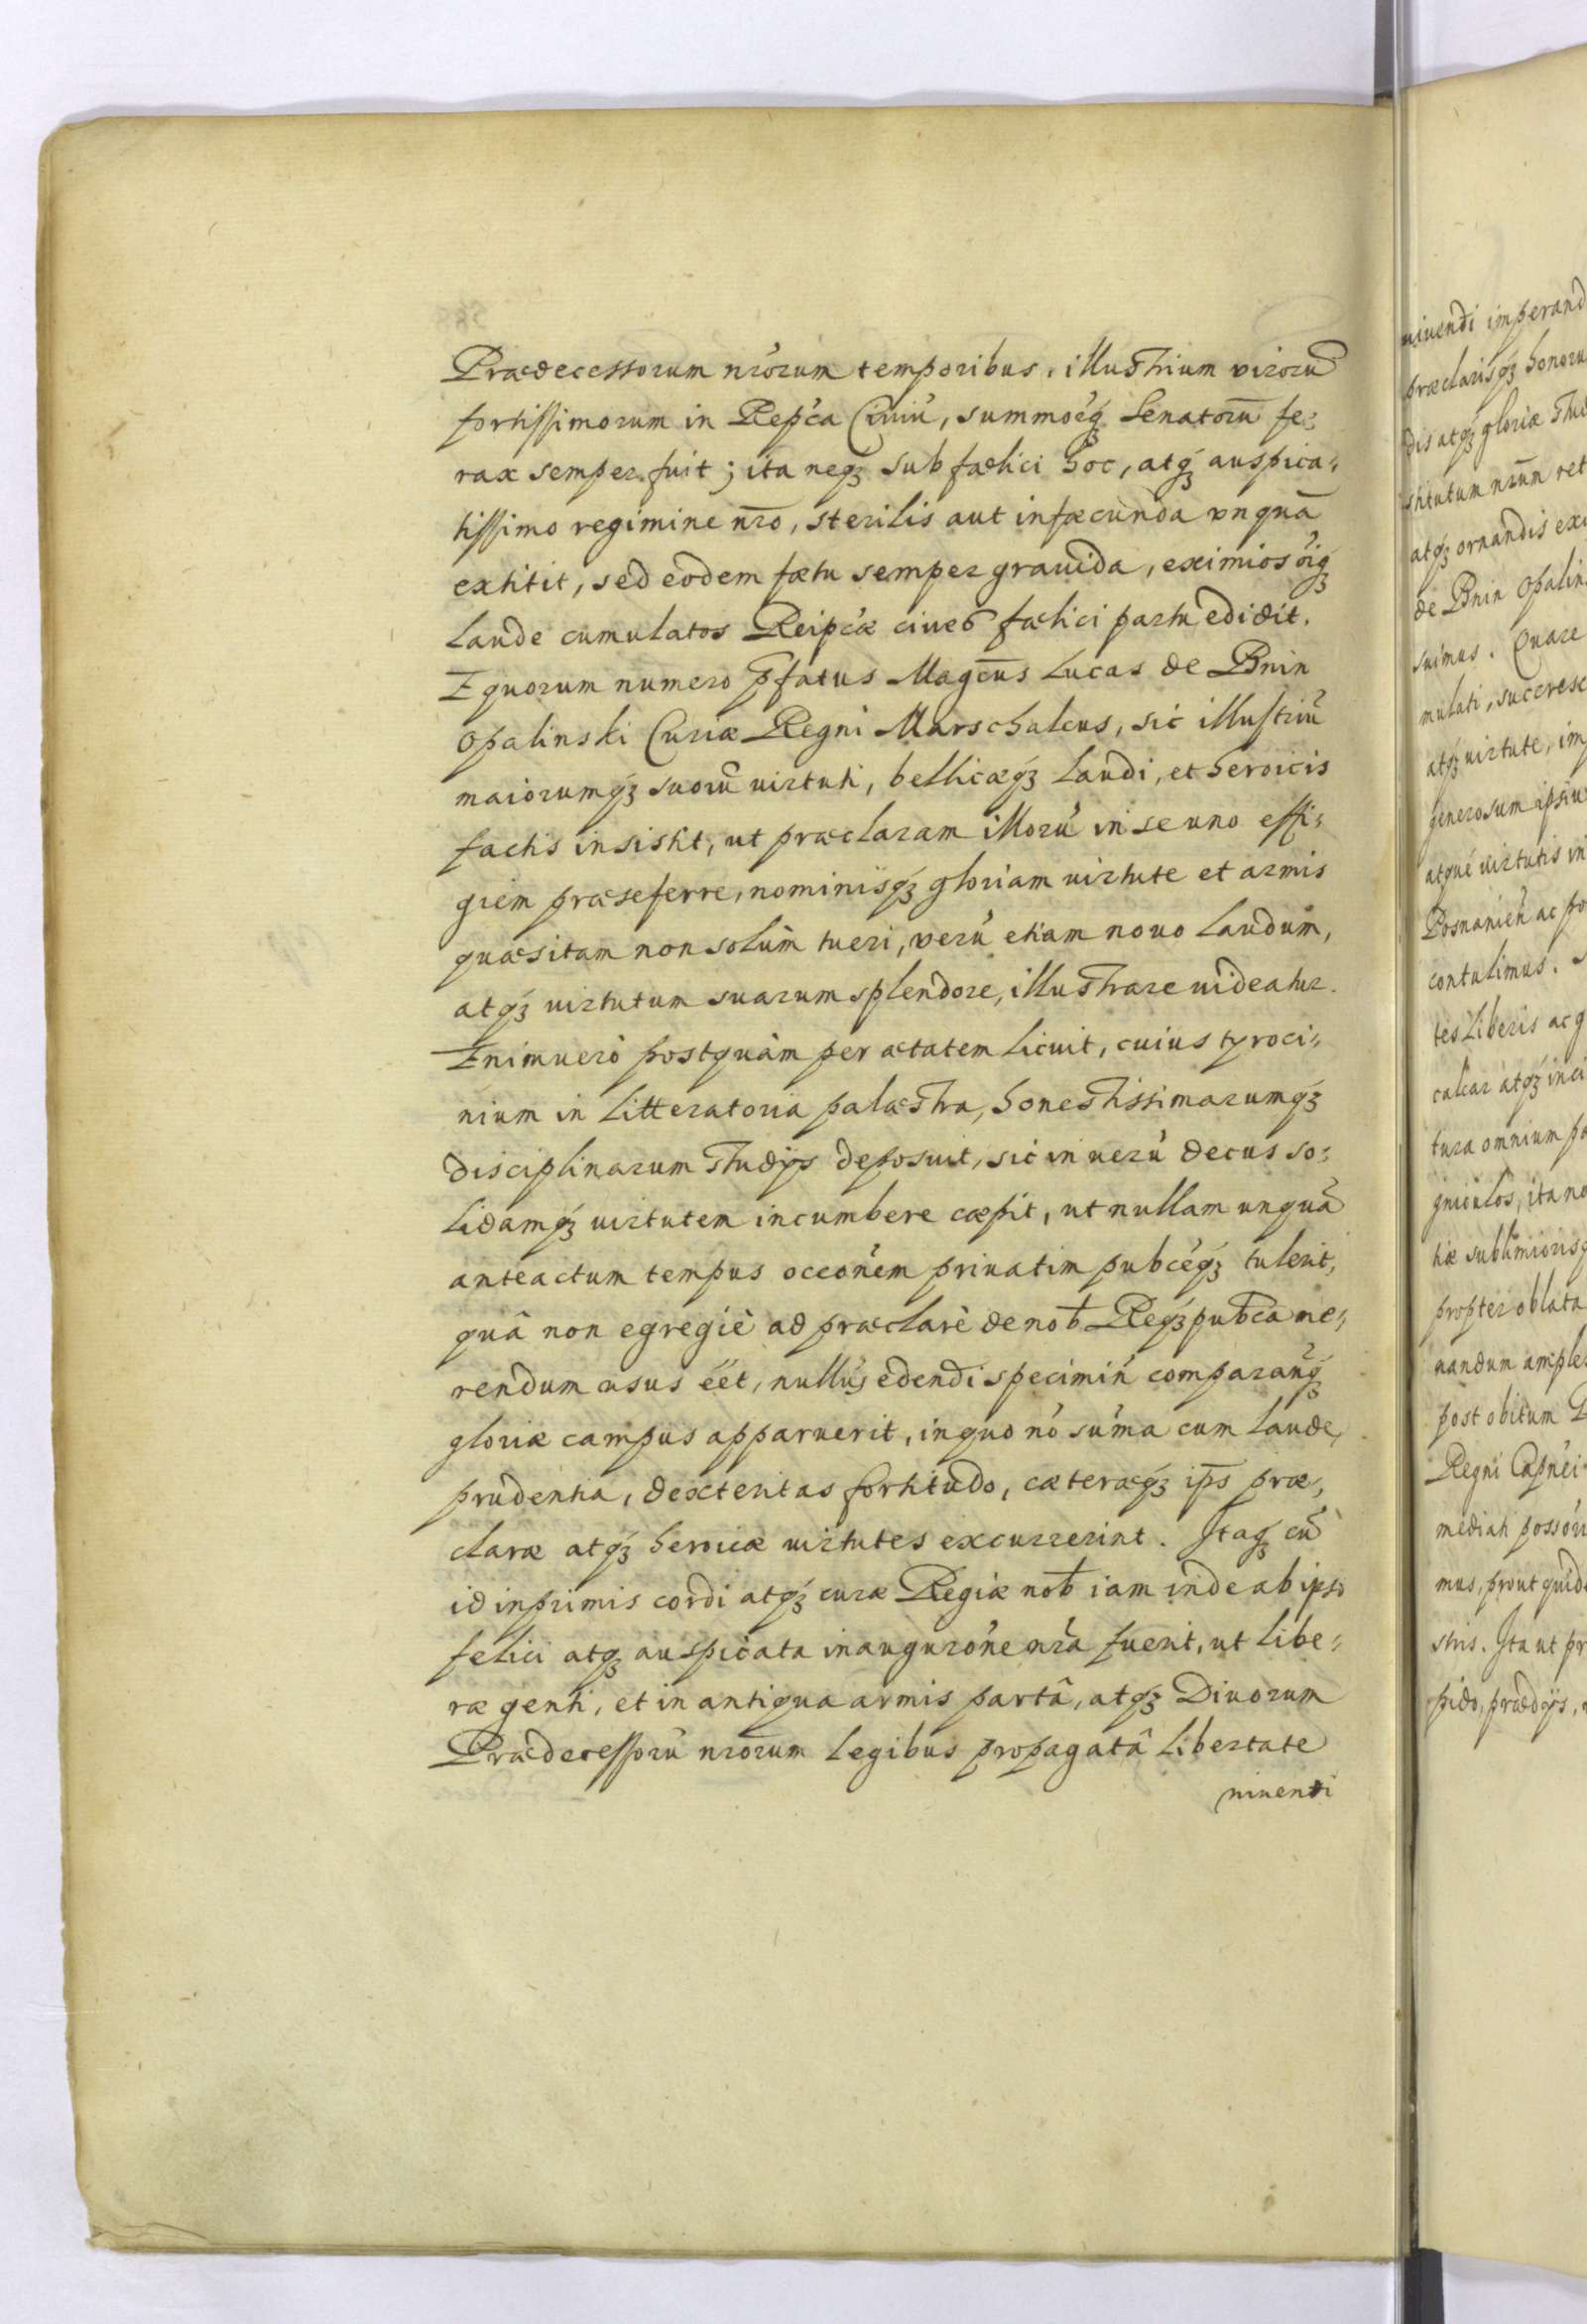 Prædecessorum nrórum temporibus, illustrium virorū
fortissimorum in Repćа Ciuiū, summoŕq₃ Senatorū fe⸗
rax semper fuit; ita neq₃ sub fælici hoc, atq₃ auspica⸗
tissimo regimine nr̄o, sterilis aut infæcunda vnquā
extitit, sed eodem fætu semper grauida, eximios óiq₃
laude cumulatos Reipćæ ciues fælici partu edidit.
E quorum numero p̄fatus Magcūs Lucas de Bnin
Opalinski Curiæ Regni Marschalcus, sic illustriū
maiorumq₃ suorū uirtuti, bellicæq₃ laudi, et heroicis
factis insistit, ut præclaram illorū in se uno effi⸗
giem præseferre, nominisq₃ gloriam uirtute et armis
quæsitam non solùm tueri, verū etiam nouo laudum,
atq₃ uirtutum suarum splendore, illustrare uideatur.
Enimuerò postquàm per ætatem licuit, cuius tyroci⸗
nium in litteratoria palæstra, honestissimarumq₃
disciplinarum studijs deposuit, sic in uerū decus so⸗
lidamq₃ uirtutem incumbere cæpit, ut nullam unquā
anteactum tempus occońem priuatim pubcéq₃ tulerit,
quâ non egregiè ad præclarè de nob̄ Req₃pub̄ca me⸗
rendum usus éét, nullusq₃ edendi speciminń comparanq₃
gloriæ campus apparuerit, in quo nó sūma cum laude,
prudentia, dexteritas fortitudo, cæteræq₃ ips̄ præ⸗
claræ atq₃ heroicæ uirtutes excurrerint. Itaq₃ cū
id inprimis cordi atq₃ curæ Regiæ nob̄ iam inde ab ipso
felici atq₃ auspicata inauguróne nr̄a fuerit, ut libe⸗
ræ genti, et in antiqua armis partâ, atq₃ Diuorum
Prædecessorū nrorum legibus propagatâ libertate
uiuendi